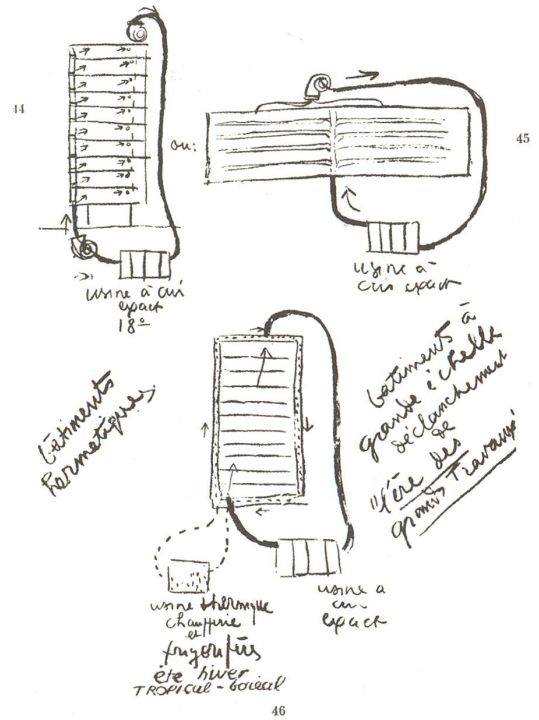 44
45
ou:
usine à air
exact
18°
usine à
air exact
bâtiments
hermétiques
bâtiments à
grande échelle
déclanchement
de
"l'ère des
grands Travaux"
usine thermique
chaufferie
et
frigorifies
été hiver
TROPICAL - boréal
usine a
air
exact
46